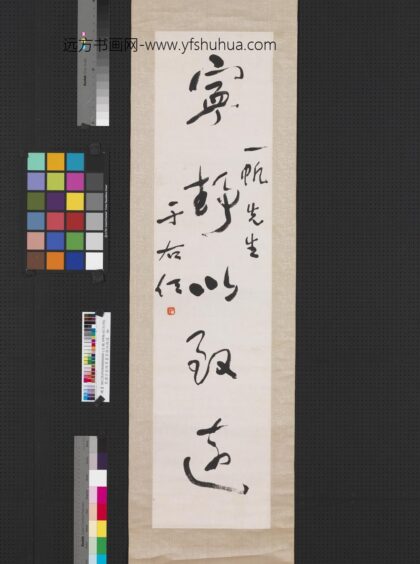 远方书画网-www.yfshuhua.com
一帆先生
宁静以致远
于右任